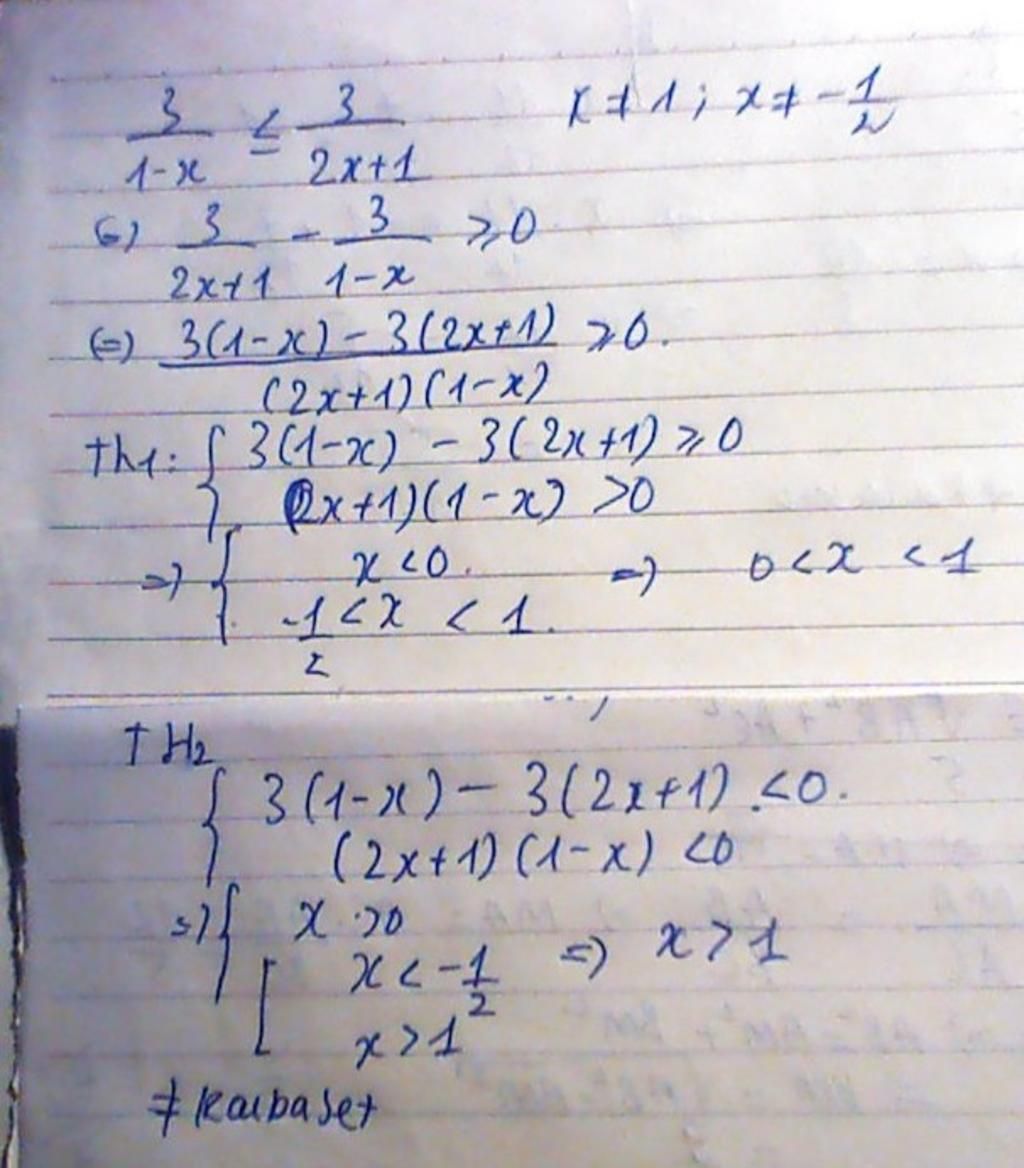 3/(1-x) ≤ 3/(2x+1) x ≠ 1; x ≠ -1/2
(=) 3/(2x+1) - 3/(1-x) ≥ 0
(=) (3(1-x) - 3(2x+1))/((2x+1)(1-x)) ≥ 0.
Th1: { 3(1-x) - 3(2x+1) ≥ 0
(2x+1)(1-x) > 0
=> { x < 0.
-1/2 < x < 1. => 0 < x < 1
TH2
{ 3(1-x) - 3(2x+1) < 0.
(2x+1)(1-x) < 0
=> { x > 0
[ x < -1/2 => x > 1
x > 1
≠ Kaibaset